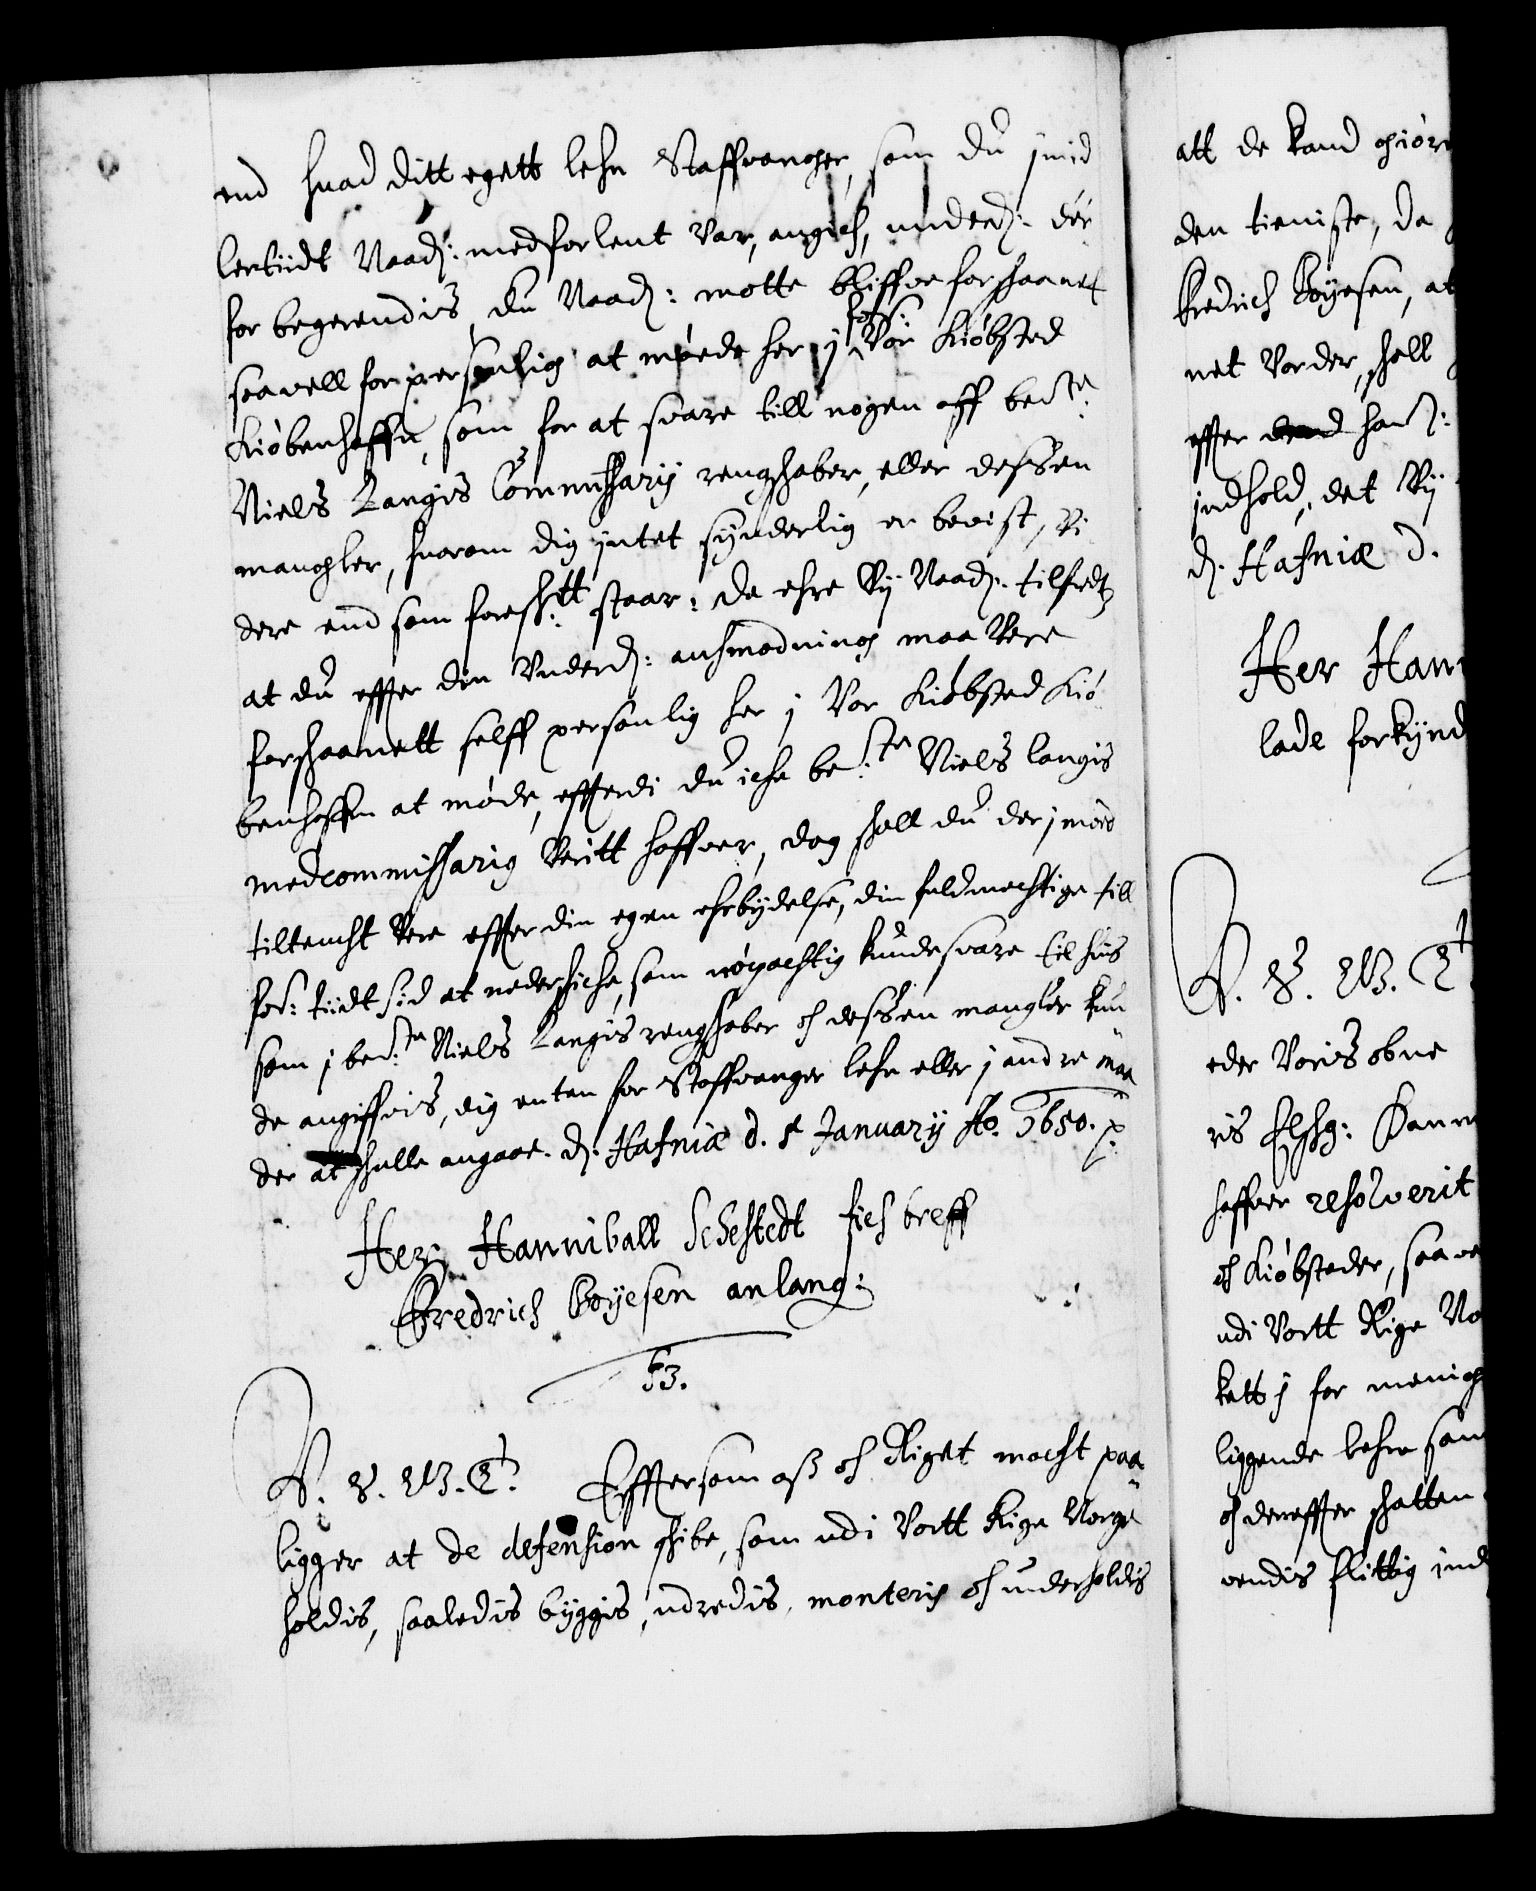 end huad ditt egett lehn Staffuanger, som du jmid
lertiidt Naadˢ: medforlent var, angich, underdˢ: der
for begerendis, du Naadˢ: motte bliffue forskaanet
saauell for personlig at møede her j Vor Kiøbsted
Kiøbenhaffn, som for at suare till nogen aff bente:
Niels Langis Commissary rengskaber, eller dessen
mangler, huorom dig jntet synderlig er beuist, vi
dere end som foreskr:tt staar: Da ehre Vy Naadˢ: tilfredtz
at du effter din Underdˢ: anhmodning maa Vere
forskaanett selff personlig her j Vor Kiøbsted Kiø
benhaffn at møde, efftterdi du iche be:te Niels langis
medcommissarig Veritt haffuer, dog skall du der jmod
tiltencht Vere effter din egen erbydelse, din fuldmechtige till
for: tiidt hid at nedershiche, som nøyachtig kunde suare til huis
som j ben:te Niels Langis rengskaber och dessen mangler kun
de angiffuis, dig enten for Staffuanger lehn eller j andre maa
der at skulle angaae. dˢ. Hafniæ d. 5 January Ao. 1650.
Her Hanniball Sehestedt fich breff
Fredrich Boyesen anlang:
53.
V. S. G. T. Efftersom oss och Riget macht paa
ligger at de defension skibe, som udi Vortt Rige Norge
holdis, saaledis byggis, udredis, monteris och underholdis
att de kand giøre
den tieniste, da
Fredrich Boyesen, at
net vorder, skall
effter dend hans:
jndhold, det Vy
dˢ. Hafniæ d.
Her Hann
lade forkynd
V. S. G. T.
eder Voris obne
ris Elskg: Dann
haffuer resolverit
och Kiøbsteder, saaue
udi Vortt Rige No
kett j for menig
liggende lehn som
och dereffter skatten
uendis flittig ind